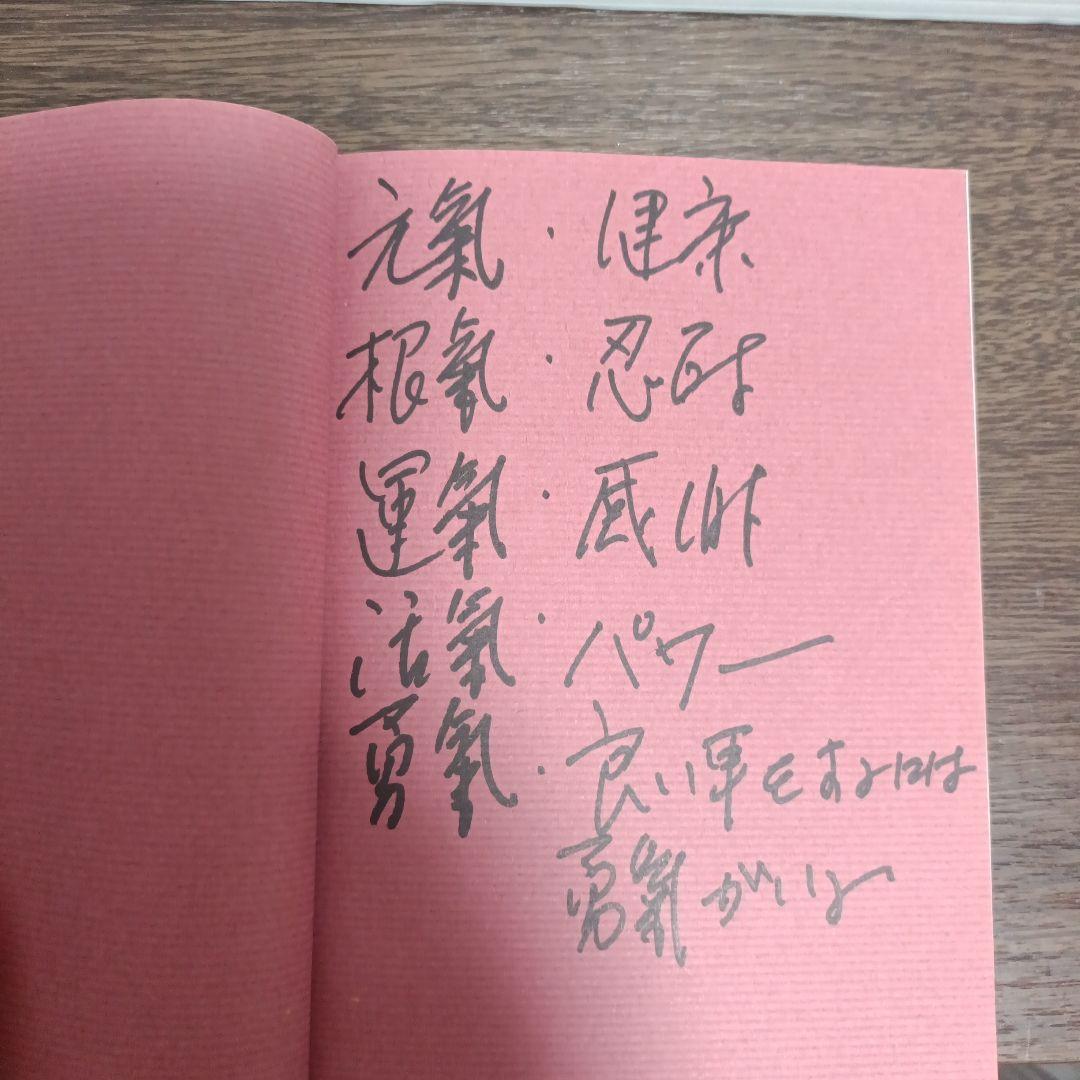 元氣・健康
根氣・忍耐
運氣・感謝
活氣・パワー
勇氣・良い事をするには
勇氣がいる